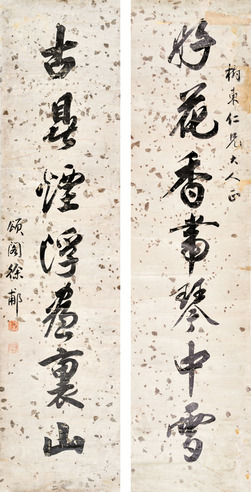 樹東仁兄大人正
好花香帶琴中雪
古鼎煙浮畫裏山
頌閣徐郙